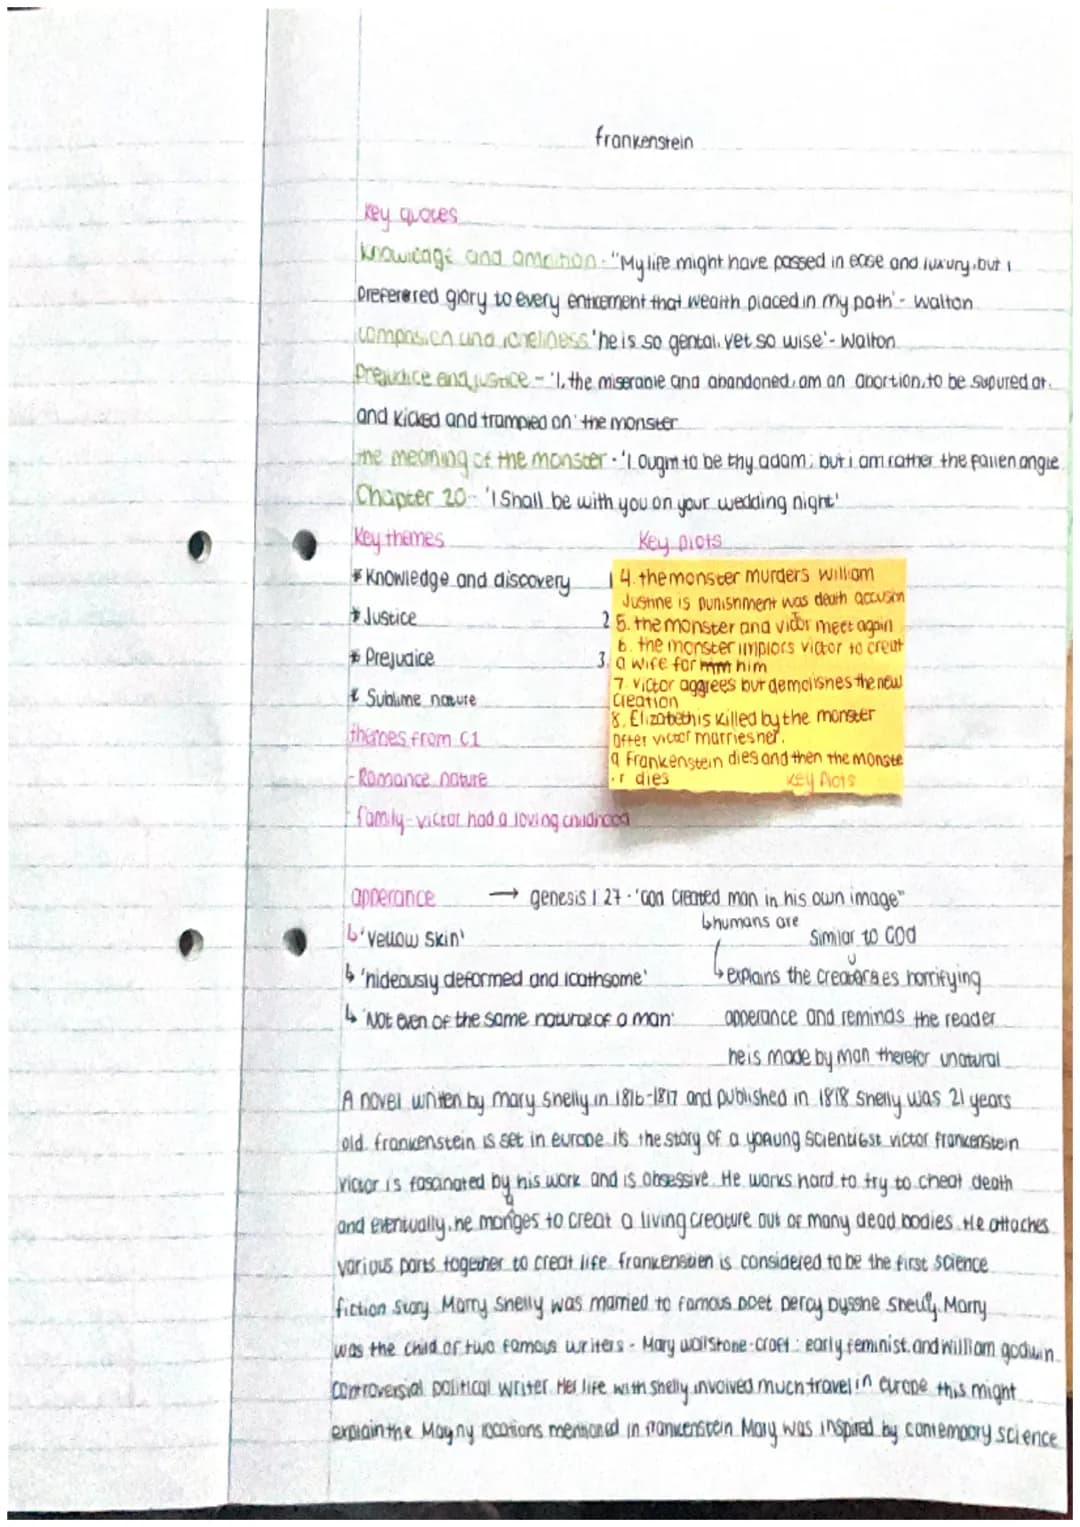 frankenstein
Key quotes
Knowledge and ambition - "My life might have passed in ease and luxury, but I
preferered glory to every enticement that wealth placed in my path' - Walton
compasion and loneliness 'he is so gental, yet so wise' - Walton
Prejudice and justice - 'I, the miserable and abandoned, am an abortion, to be supured at,
and kicked and trampled on' the monster
the meaning of the monster - 'I ought to be thy adam; but i am rather the fallen angle
Chapter 20 - 'I Shall be with you on your wedding night'
Key themes
Key plots
* Knowledge and discovery
* Justice
* Prejudice
* Sublime nature
themes from C1
- Romance nature
- family - victor had a loving childhood
1
2
3.
4. the monster murders william
Justine is punishment was death accusin
5. the monster and victor meet again
6. the monster implors victor to creat
a wife for him
7. victor aggrees but demolishes the new
creation
8. Elizabeth is killed by the monster
after victor marries her.
9 Frankenstein dies and then the monste
r dies
key plots
apperance → genesis 1 27 - 'God Created man in his own image"
↳ humans are
similar to GOD
↳ 'Yellow skin'
↳ 'hideously deformed and loathsome'
↳ 'Not even of the same nature of a man'
↳ explains the horrifying
apperance and reminds the reader
he is made by man therefor unatural
A novel written by mary Shelly in 1816-1817 and published in 1818 Shelly was 21 years
old. frankenstein is set in europe its the story of a young scientist victor frankenstein
victor is fasanated by his work and is obsessive. He works hard to try to cheat death
and eventually, he manges to creat a living creature out of many dead bodies. He attaches
various parts together to creat life. frankenstien is considered to be the first science
fiction story. Marry Shelly was married to famous poet percy bysshe Shelly. Marry
was the child of two famous writers - Mary wollstone-croft: early feminist and william godwin
controversial political writer. Her life with Shelly involved much travel in europe this might
explain the locations mentioned in frankenstein. Mary was inspired by contempory science